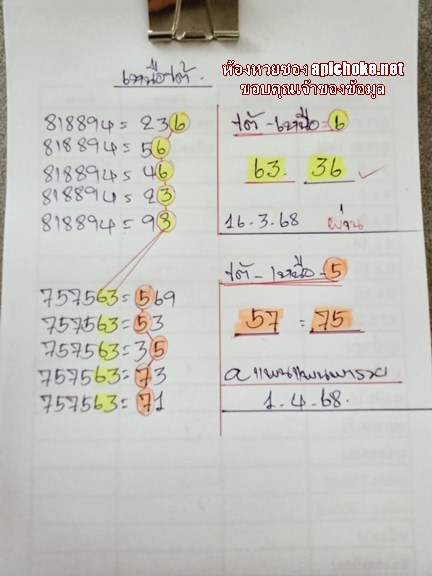 เหนือใต้.
ห้องหวยซอง apichoke.net
ขอบคุณเจ้าของข้อมูล
818894 = 236
818894 = 56
818894 = 46
818894 = 23
818894 = 93
ใต้ - เหนือ = 6
63. 36
16.3.68 ผ่าน
757563 = 569
757563 = 53
757563 = 35
757563 = 73
757563 = 71
ใต้ - เหนือ - 5
57 = 75
1.4.68.